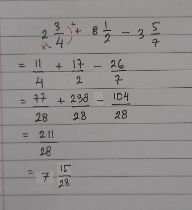 2 3/4 + 8 1/2 - 3 5/7
= 11/4 + 17/2 - 26/7
= 77/28 + 238/28 - 104/28
= 211/28
= 7 15/28